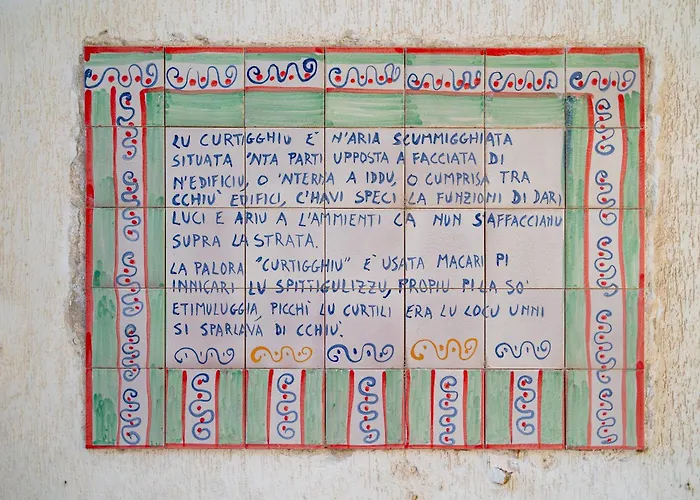 LU CURTIGGHIU E' N'ARIA SCUMMIGGHIATA
SITUATA 'NTA PARTI UPPOSTA A FACCIATA DI
N'EDIFICIU, O 'NTERNA A IDDU, O CUMPRISA TRA
CCHIU' EDIFICI, C'HAVI SPECI LA FUNZIONI DI DARI
LUCI E ARIU A L'AMMIENTI CA NUN S'AFFACCIANU
SUPRA LA STRATA.
LA PALORA "CURTIGGHIU" E' USATA MACARI PI
INNICARI LU SPITTIGULIZZU, PROPIU PI LA SO'
ETIMULUGGIA, PICCHÌ LU CURTILI ERA LU LOCU UNNI
SI SPARLAVA DI CCHIÙ.